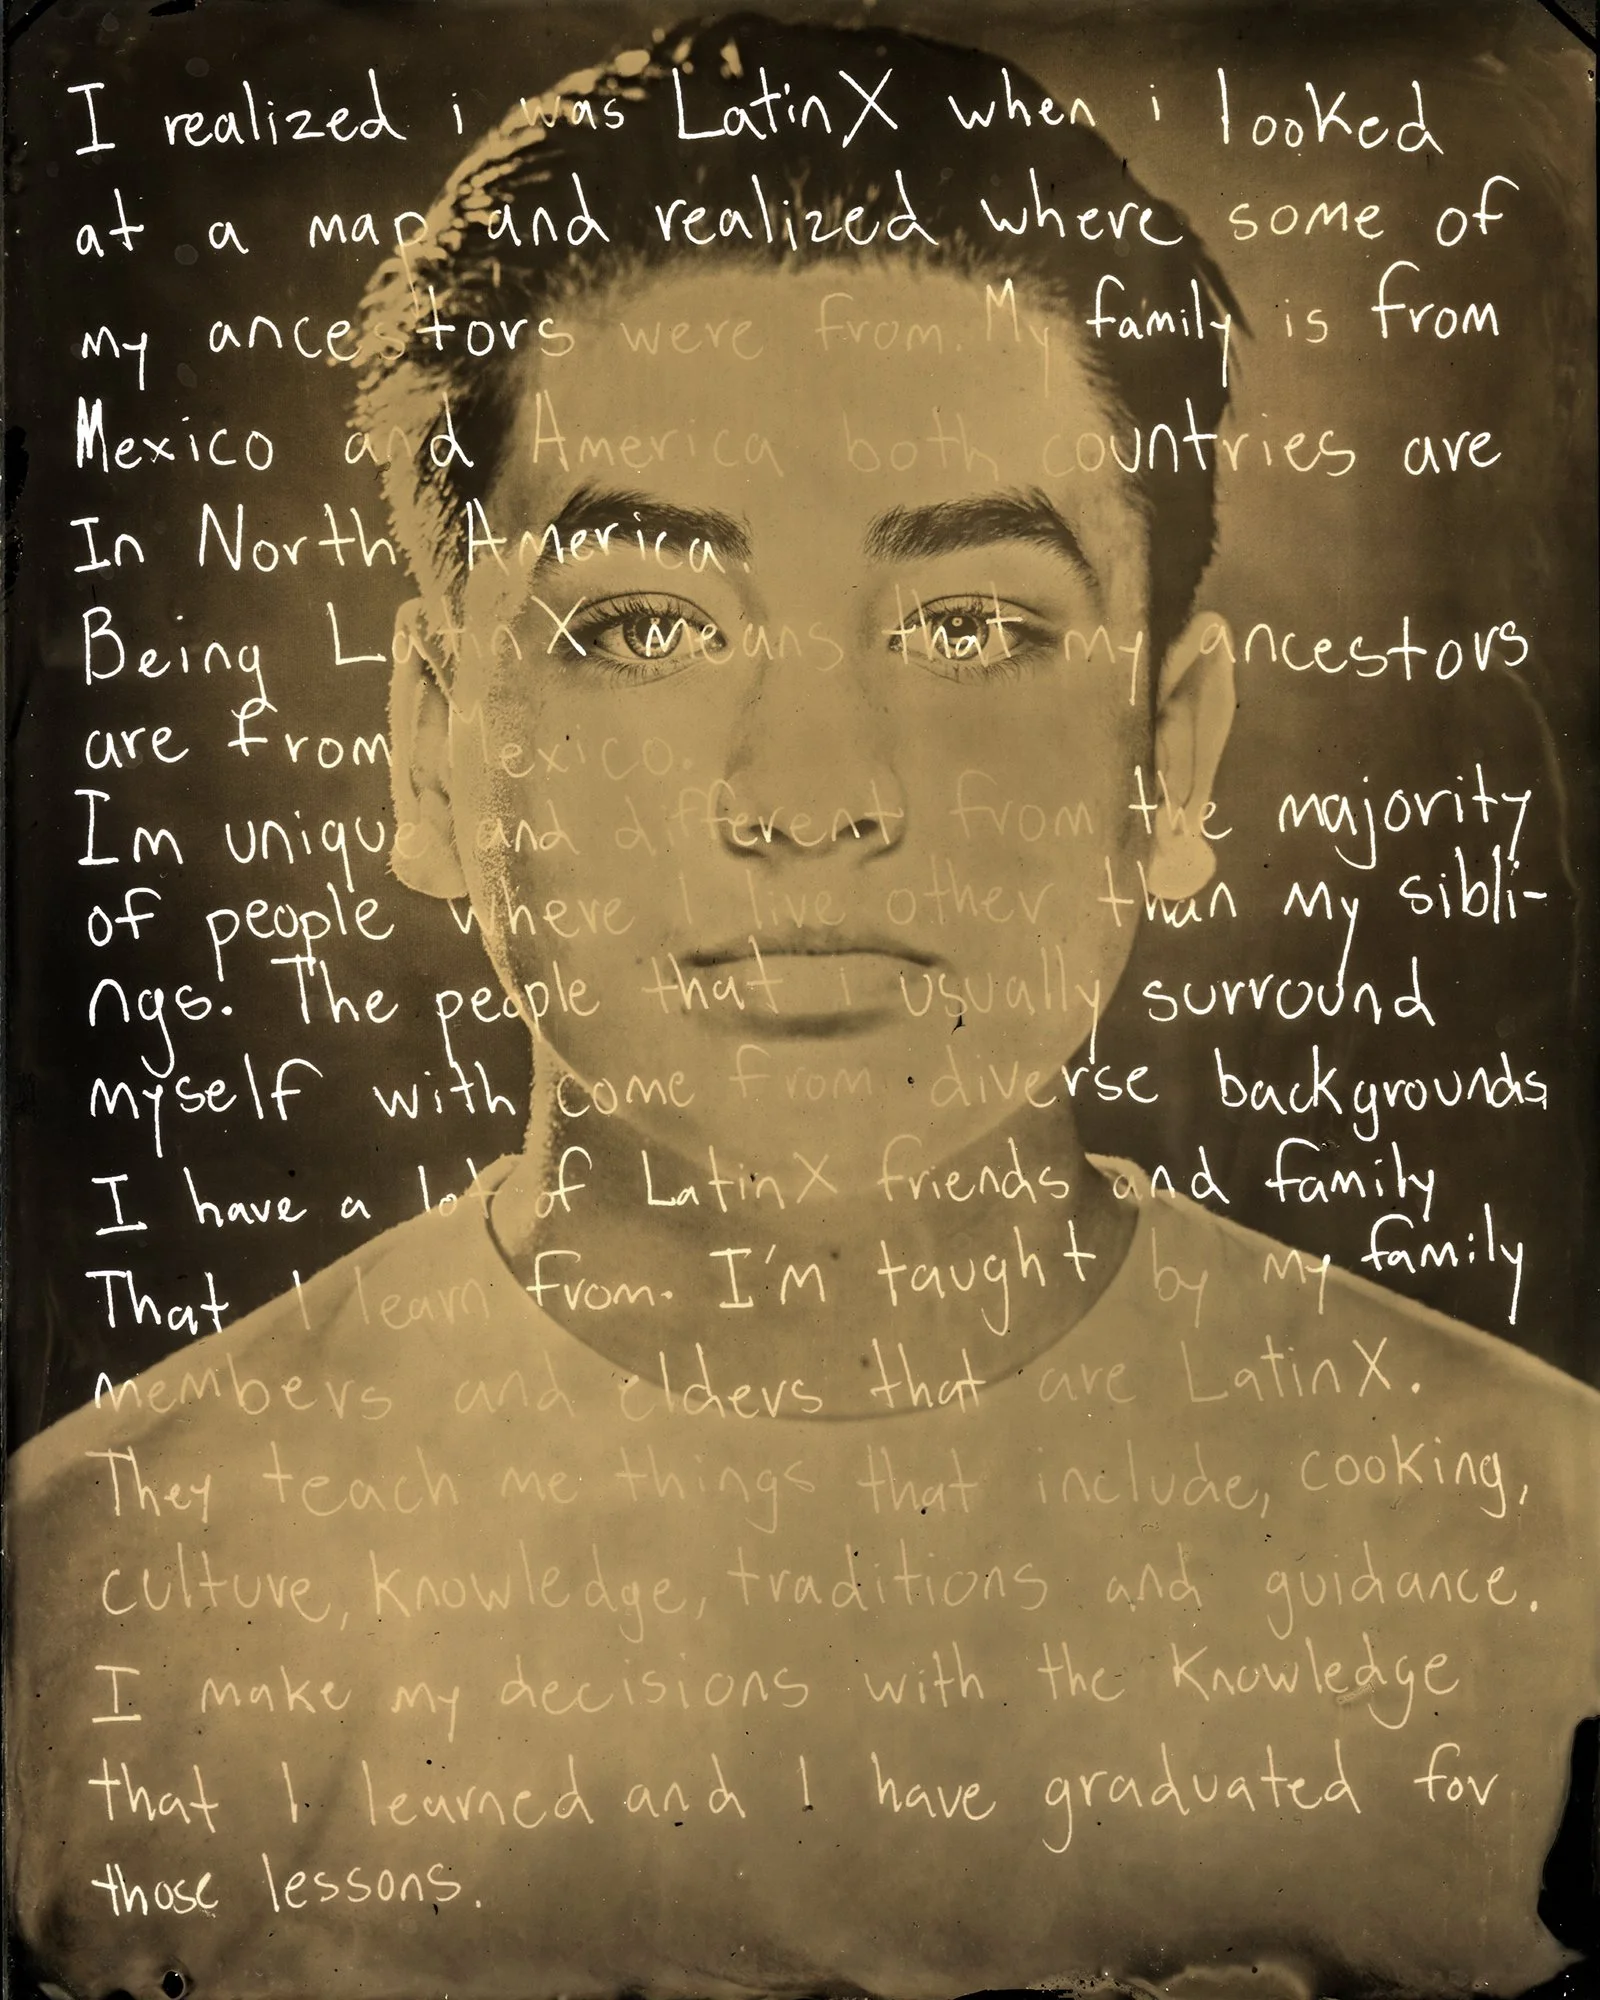 I realized i was LatinX when i looked
at a map and realized where some of
my ancestors were from. My family is from
Mexico and America both countries are
In North America.
Being LatinX means that my ancestors
are from Mexico.
Im unique and different from the majority
of people where I live other than my sibli-
ngs. The people that i usually surround
myself with come from diverse backgrounds
I have a lot of LatinX friends and family
That I learn from. I'm taught by my family
members and elders that are LatinX.
They teach me things that include, cooking,
culture, knowledge, traditions and guidance.
I make my decisions with the knowledge
that I learned and I have graduated for
those lessons.